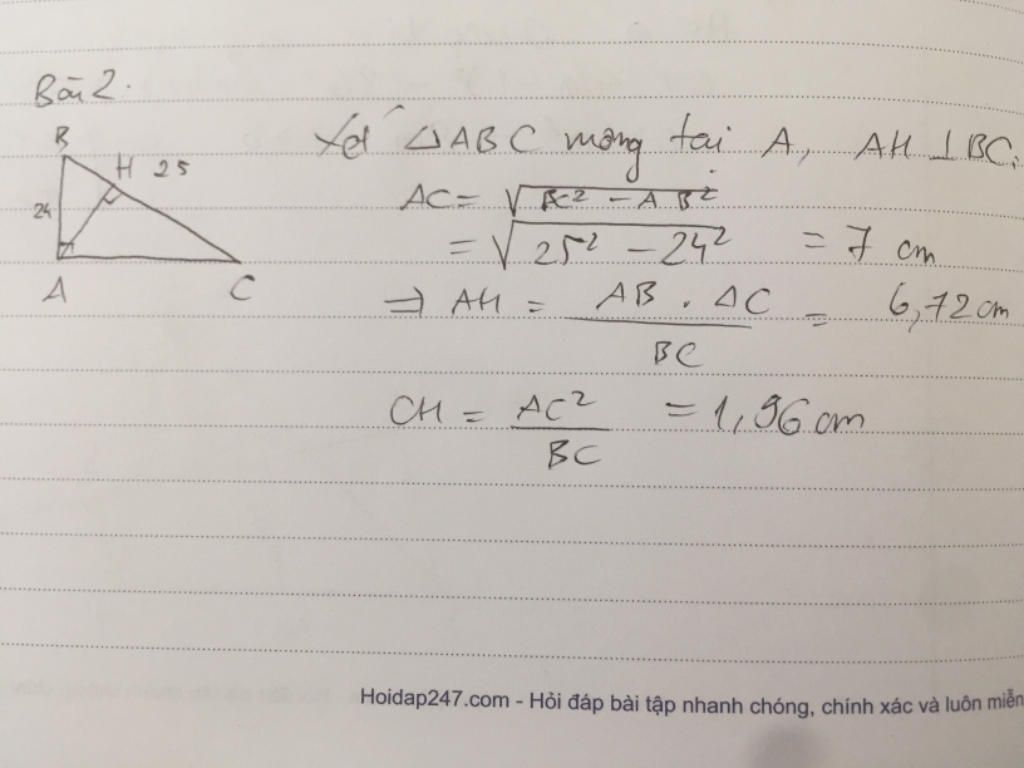 Bài 2.
B
H 25
24
A C
Xét △ABC vuông tại A, AH ⊥ BC.
AC = √(BC² - AB²)
= √(25² - 24²) = 7 cm
⇒ AH = AB . AC / BC = 6,72 cm
CH = AC² / BC = 1,96 cm
Hoidap247.com - Hỏi đáp bài tập nhanh chóng, chính xác và luôn miễn